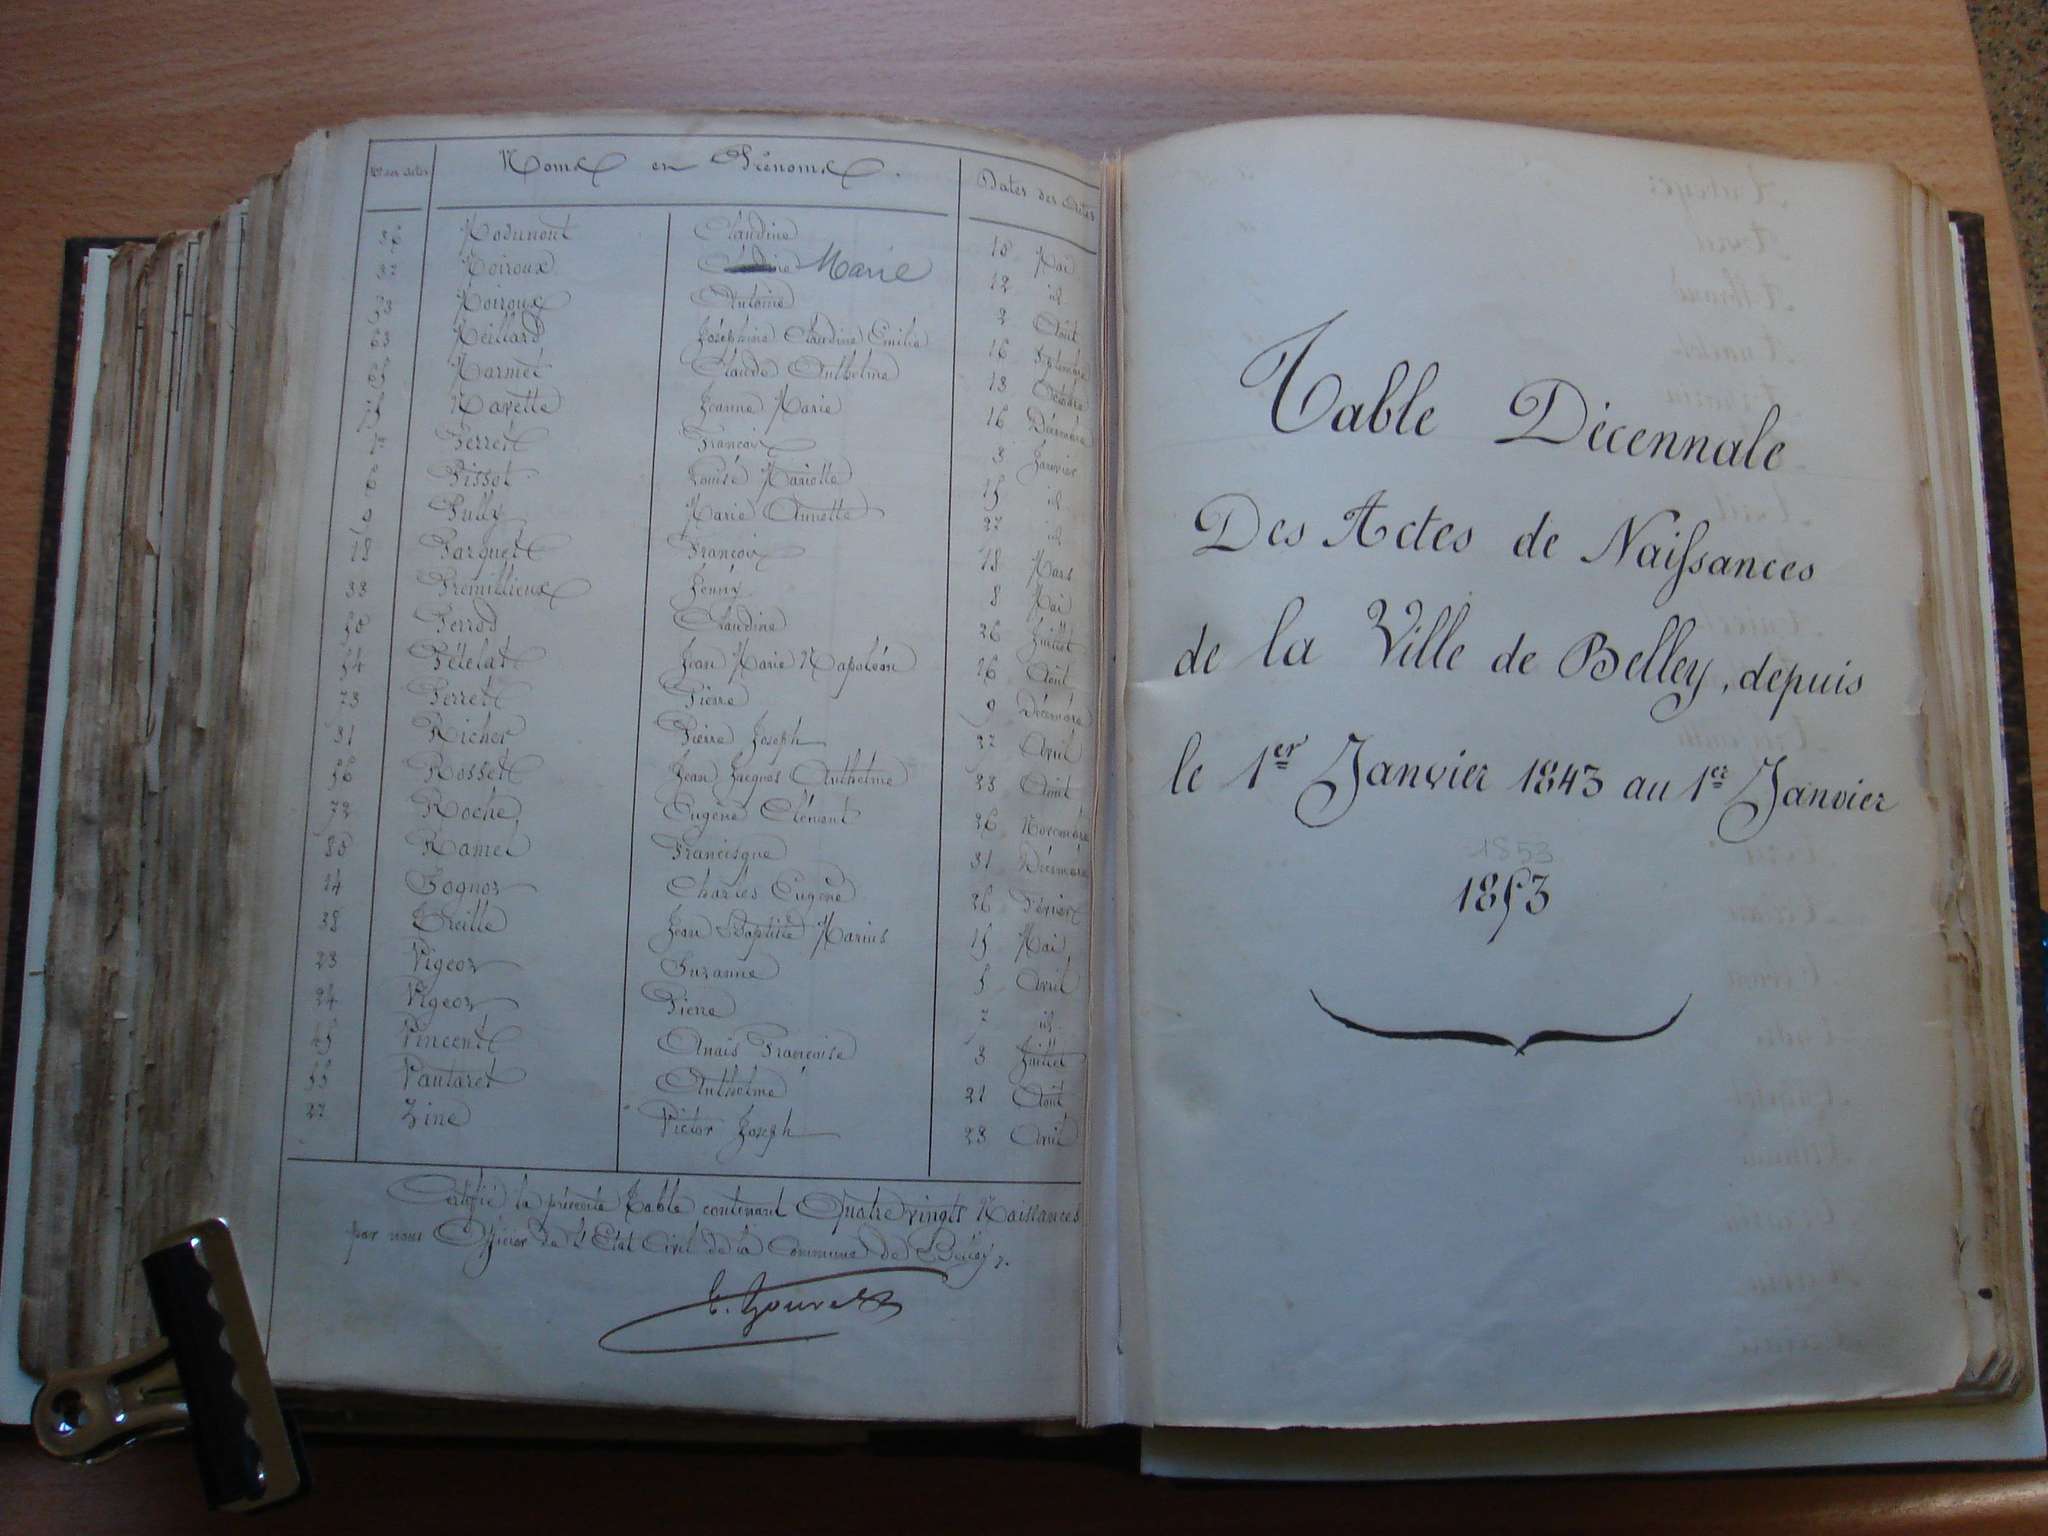 Nos des actes Noms et Prénoms Dates des Actes
36 Claudine 18 Mai
37 Noiroux Marie 12 id
Noiroux Antoine 2 Août
63 Neillard Joséphine Claudine Emilie 16 Septembre
Narmet Claude Anthelme 18 Octobre
75 Navette Jeanne Marie 16 Décembre
Perret François 3 Janvier
6 Pissot Louise Mariette 15 id
9 Pully Marie Annette 27 id
18 Parquet François 18 Mars
33 Premillieux Jenny 8 Mai
50 Perrod Claudine 26 Juillet
54 Pételat Jean Marie Napoléon 16 Août
73 Perret Pierre 9 Décembre
31 Richer Pierre Joseph 27 Avril
56 Rosset Jean Jacques Anthelme 23 Août
72 Roche Eugène Clément 26 Novembre
80 Ramel Francisque 31 Décembre
14 Charles Eugène 26 Février
38 Treille Jean Baptiste Marius 15 Mai
23 Vigeor Suzanne 5 Avril
24 Vigeor Pierre 7 id
45 Vincent Anais Françoise 3 Juillet
55 Vautaret Anthelme 21 Août
27 Zine Victor Joseph 23 Avril
Certifié la présente Table contenant Quatre vingts Naissances
par nous Officier de l'Etat Civil de la Commune de Belley.
Table Décennale
Des Actes de Naissances
de la Ville de Belley, depuis
le 1er Janvier 1843 au 1er Janvier
1853
1853